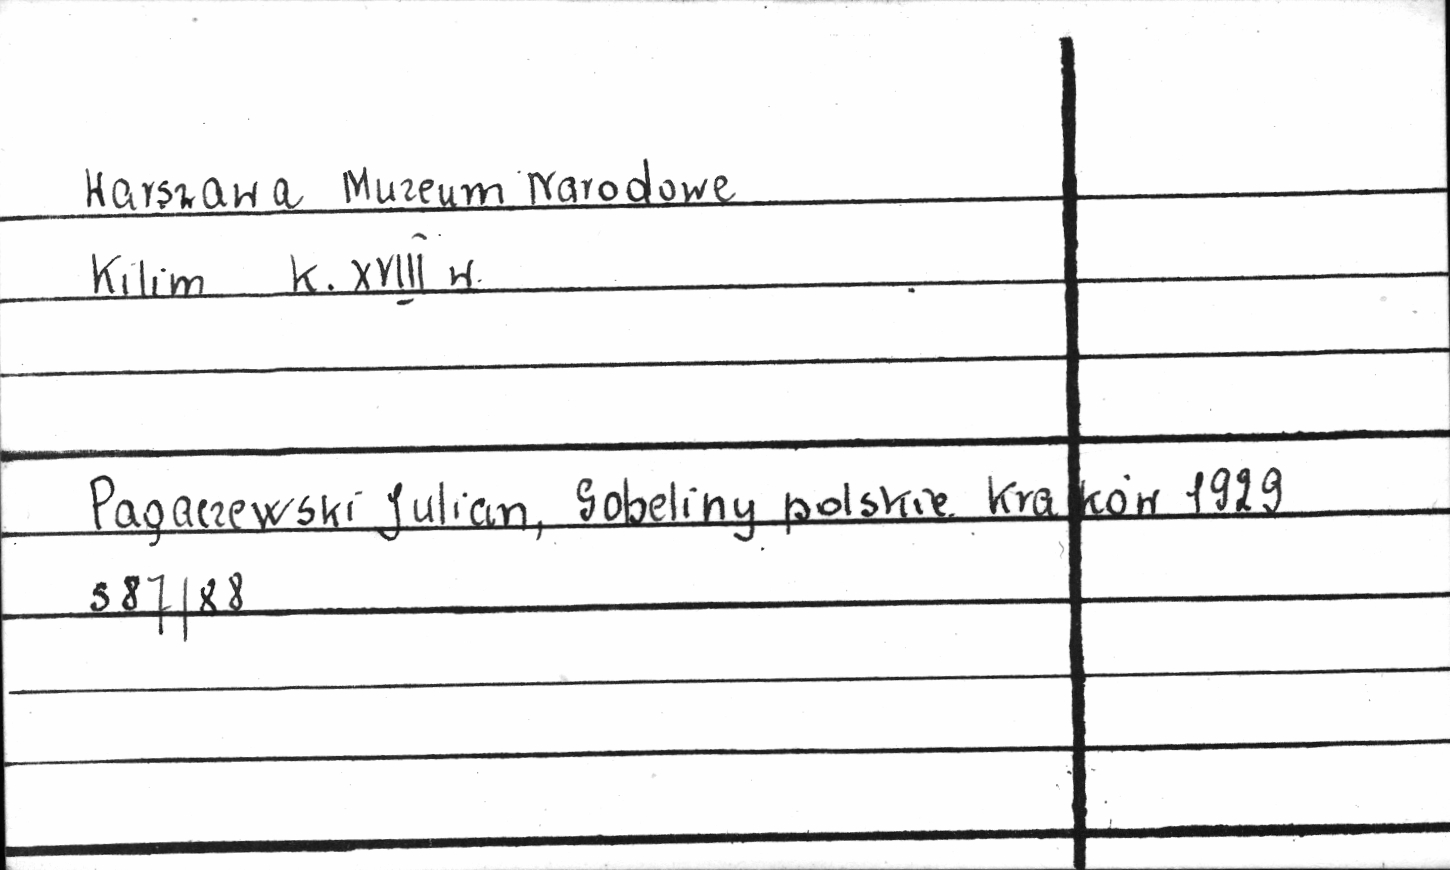 Warszawa Muzeum Narodowe
Kilim k. XVIII w.
Pagaczewski Julian, Gobeliny polskie. Kraków 1929
s 87/88